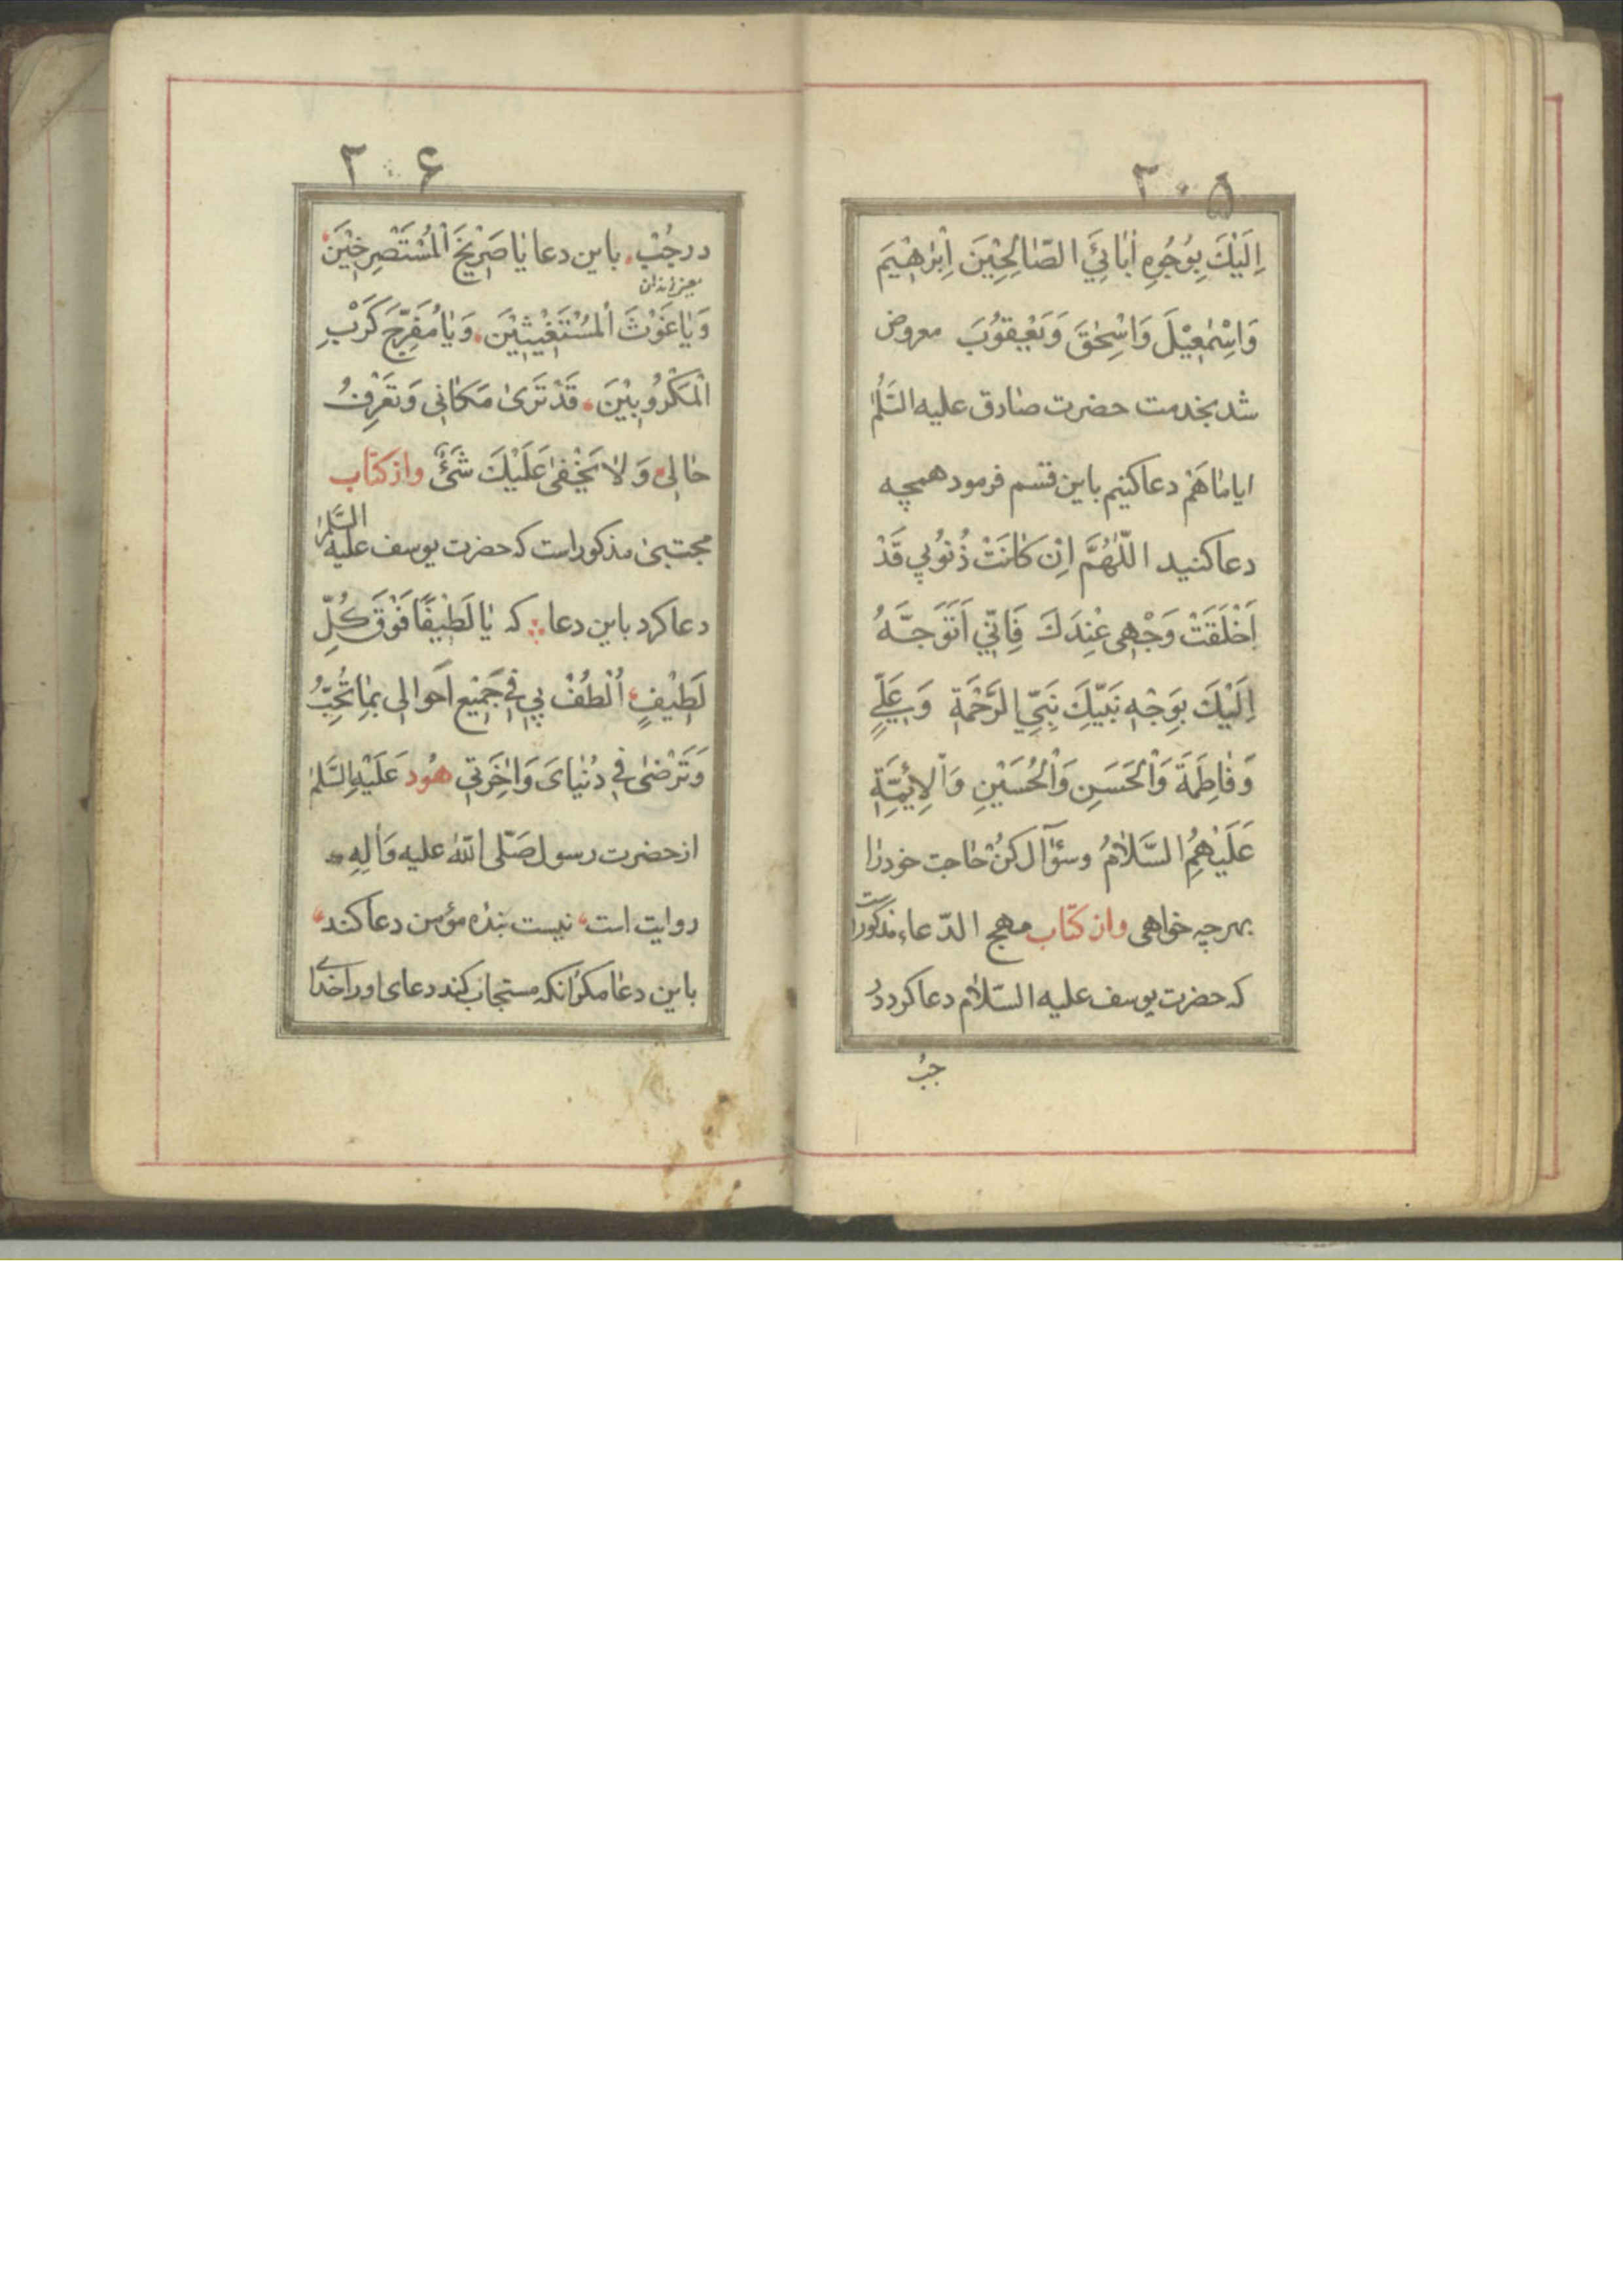 ۳۰۵
اِلَيْكَ بِوُجُوهِ اٰبٰائِيَ الصّٰالِحِيْنَ اِبْرٰهِيْمَ
وَاِسْمٰعِيْلَ وَاِسْحٰقَ وَيَعْيقُوْبَ معروض
شد بخدمت حضرت صٰادق عليه السَّلٰم
ايا ماهَمْ دعا كنيم باين قسم فرمود همچه
دعا كنيد اللّٰهُمَّ اِنْ كٰانَتْ ذُنُوْبِي قَدْ
اَخْلَقَتْ وَجْهِى عِنْدَكَ فَاِنّي اَتَوَجَّهُ
اِلَيْكَ بِوَجْهِ نَبِيِّكَ نَبِيِّ الرَّحْمَةِ وَبِعَلِيٍّ
وَفٰاطِمَةَ وَالْحَسَنِ وَالْحُسَيْنِ وَالْاَئِمَّةِ
عَلَيْهِمُ السَّلاٰمُ وسؤال كُنْ حٰاجت خود را
بهرچه خواهى واز كتاب مهج الدّعاء مذكور است
كه حضرت يوسف عليه السّلاٰم دعا كرد در
جُب
۳۰۶
در جُبْ باين دعا يٰا صَرِيْخَ الْمُسْتَصْرِخِيْنَ
يعنى زندان
وَيٰا غَوْثَ الْمُسْتَغِيْثِيْنَ وَيٰا مُفَرِّجَ كَرْبِ
الْمَكْرُوْبِيْنَ قَدْ تَرىٰ مَكٰانِى وَتَعْرِفُ
حٰالِى وَلاٰ يَخْفىٰ عَلَيْكَ شَىْءٌ واز كتاب
مجتبىٰ مذكور است كه حضرت يوسف عليه السَّلٰم
دعا كرد باين دعا كه يٰا لَطِيْفًا فَوْقَ كُلِّ
لَطِيْفٍ اُلْطُفْ بِي فِي جَمِيْعِ اَحوالِى بِمٰا تُحِبُّ
وَتَرْضىٰ فِي دُنْيٰاىَ وَاٰخِرَتِي هُود عَلَيْهِ السَّلٰم
از حضرت رسول صَلّى اللّٰه عليه وَاٰلِهِ
روايت است نيست بنده مؤمن دعا كند
باين دعا مكر انكه مستجاب كند دعاى او را خداى